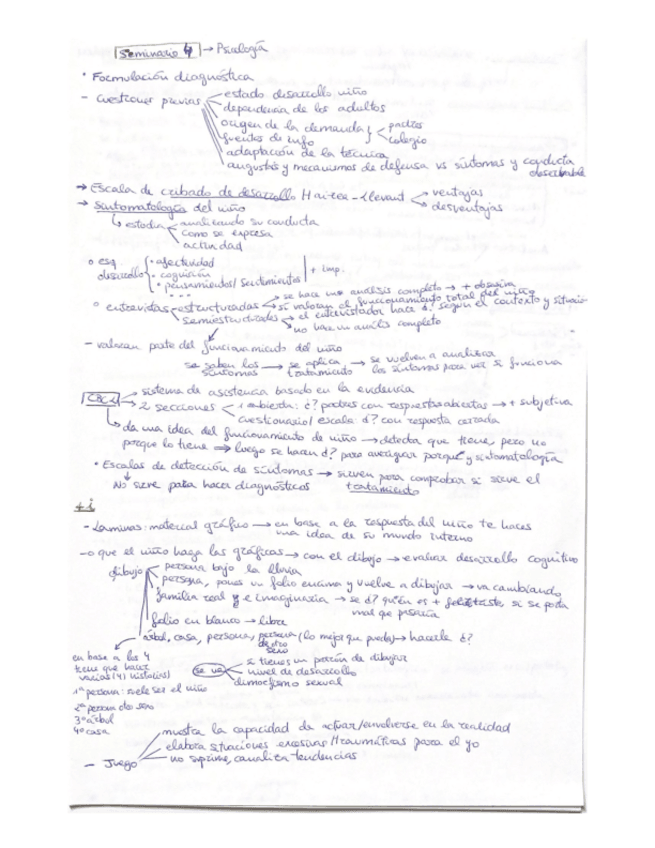 Seminario 4 → Psicología
• Formulación diagnóstica
- Cuestiones previas
estado desarrollo niño
dependencia de los adultos
origen de la demanda
fuentes de info
padres
colegio
adaptación de la técnica
angustias y mecanismos de defensa vs síntomas y conducta
→ Escala de cribado de desarrollo Haizea-Llevant
ventajas
desventajas
→ Sintomatología del niño
↳ estudia
analizando su conducta
como se expresa
actividad
o esq. desarrollo
• afectividad
• cognición
• pensamientos/sentimientos
...
+ imp.
o entrevistas
estructuradas
se hace un análisis completo → + obsesiva
si valoran el funcionamiento total del niño
semiestructuradas
el entrevistador hace ¿? según el contexto y situación
no hace un análisis completo
- valoran parte del funcionamiento del niño
se saben los síntomas → se aplica tratamiento → se vuelven a analizar los síntomas para ver si funciona
CBCL
sistema de asistencia basado en la evidencia
2 secciones
1 abierta: ¿? padres con respuestas abiertas → + subjetiva
cuestionario/escala: ¿? con respuesta cerrada
↳ da una idea del funcionamiento de niño → detecta que tiene, pero no
porque lo tiene → luego se hacen ¿? para averiguar porqué y sintomatología
• Escalas de detección de síntomas → sirven para comprobar si sirve el tratamiento
No sirve para hacer diagnósticos
+i
- Láminas: material gráfico → en base a la respuesta del niño te haces
una idea de su mundo interno
- o que el niño haga las gráficas → con el dibujo → evaluar desarrollo cognitivo
dibujo
persona bajo la lluvia
persona, pones un folio encima y vuelve a dibujar → va cambiando
familia real e imaginaria → se ¿? quién es + feliz/triste, si se porta
mal que pasaría
folio en blanco → libre
árbol, casa, persona, persona de otro sexo (lo mejor que pueda) → hacerle ¿?
en base a los 4
tiene que hacer
varias (4) historias
se ve
si tienes un patrón de dibujar
nivel de desarrollo
dimorfismo sexual
1ª persona: suele ser el niño
2ª persona otro sexo
3º árbol
4º casa
- Juego
muestra la capacidad de actuar/envolverse en la realidad
elabora situaciones excesivas/traumáticas para el yo
no suprime, canaliza tendencias